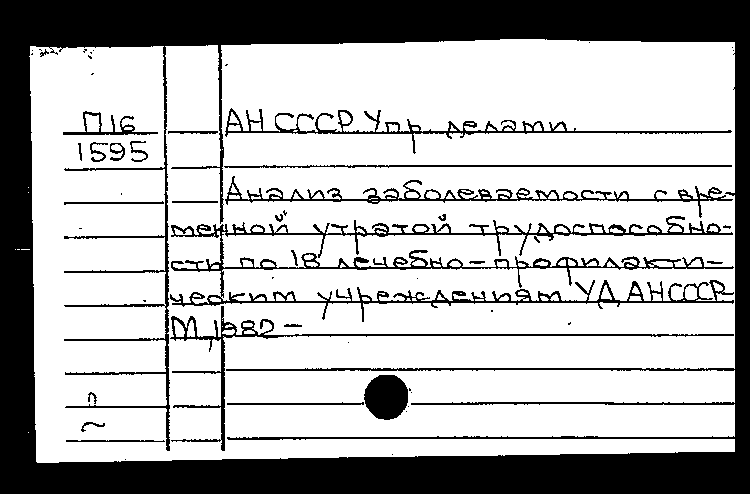 П16 АН СССР Упр. делами.
1595
Анализ заболеваемости с вре-
менной утратой трудоспособно-
сти по 18 лечебно-профилакти-
ческим учреждениям УД АНСССР
М, 1982 –
п
~